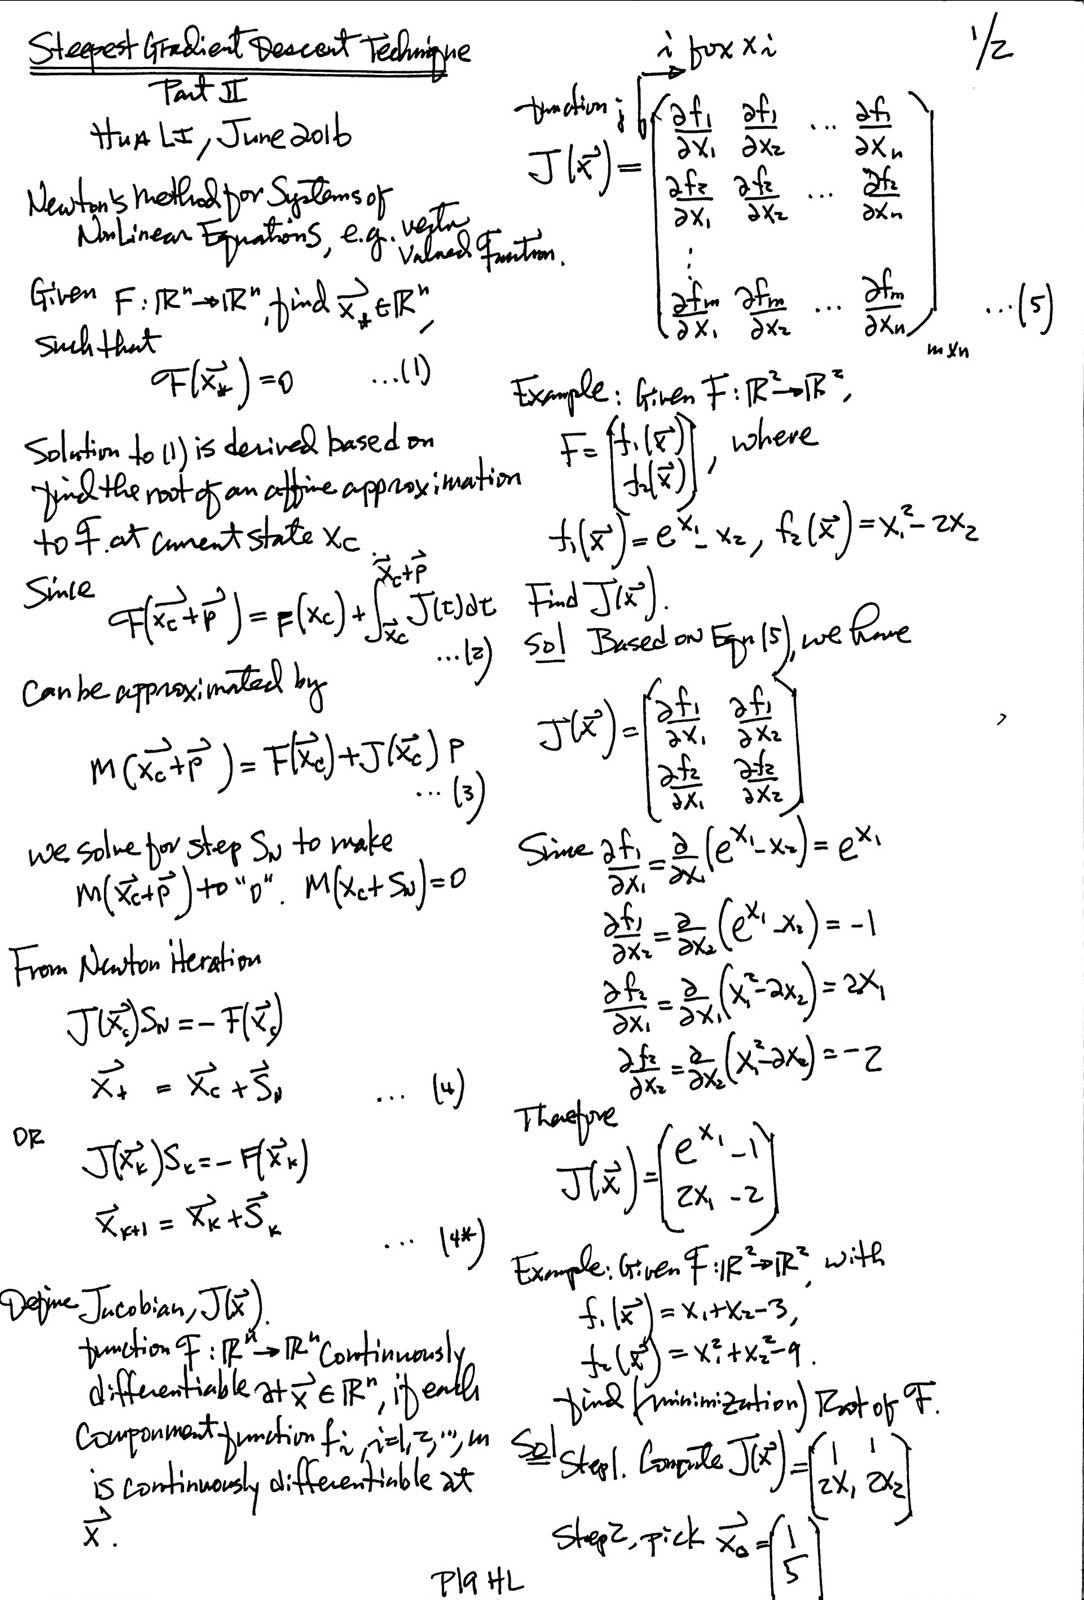 Steepest Gradient Descent Technique
Part II
HUA LI, June 2016
Newton's Method for Systems of
NonLinear Equations, e.g. vector
Valued Function.
Given F: ℝⁿ→ℝⁿ, find x⃗* ∈ ℝⁿ,
such that
F(x⃗*) = 0 ...(1)
Solution to (1) is derived based on
find the root of an affine approximation
to F. at current state Xc.
Since
F(x⃗c+p⃗) = F(xc) + ∫_{x⃗c}^{x⃗c+p⃗} J(t)dt
...(2)
Can be approximated by
M(x⃗c+p⃗) = F(x⃗c) + J(x⃗c) P
...(3)
we solve for step SN to make
M(x⃗c+p⃗) to "0". M(xc+SN)=0
From Newton iteration
J(x⃗c)SN = -F(x⃗c)
x⃗+ = x⃗c + S⃗N ... (4)
OR
J(x⃗k)Sk = -F(x⃗k)
x⃗k+1 = x⃗k + S⃗k
... (4*)
Define Jacobian, J(x⃗).
function F: ℝⁿ→ℝⁿ Continuously
differentiable at x⃗ ∈ ℝⁿ, if each
Component function fi, i=1,2,..., m
is continuously differentiable at
x⃗.
P19 HL
1/2
i for xi
function j
J(x⃗) = ( ∂f1/∂x1 ∂f1/∂x2 ... ∂f1/∂xn
∂f2/∂x1 ∂f2/∂x2 ... ∂f2/∂xn
⋮
∂fm/∂x1 ∂fm/∂x2 ... ∂fm/∂xn ) m×n ...(5)
Example: Given F: ℝ²→ℝ²,
F = ( f1(x⃗)
f2(x⃗) ), where
f1(x⃗) = e^x1 - x2, f2(x⃗) = x1² - 2x2
Find J(x⃗).
Sol Based on Eqn (5), we have
J(x⃗) = ( ∂f1/∂x1 ∂f1/∂x2
∂f2/∂x1 ∂f2/∂x2 )
Since ∂f1/∂x1 = ∂/∂x1 (e^x1 - x2) = e^x1
∂f1/∂x2 = ∂/∂x2 (e^x1 - x2) = -1
∂f2/∂x1 = ∂/∂x1 (x1² - 2x2) = 2x1
∂f2/∂x2 = ∂/∂x2 (x1² - 2x2) = -2
Therefore
J(x⃗) = ( e^x1 -1
2x1 -2 )
Example: Given F: ℝ²→ℝ², with
f1(x⃗) = x1+x2-3,
f2(x⃗) = x1²+x2²-9.
find (minimization) Root of F.
Sol Step1. Compute J(x⃗) = ( 1 1
2x1 2x2 )
Step2, pick x⃗0 = ( 1
5 )